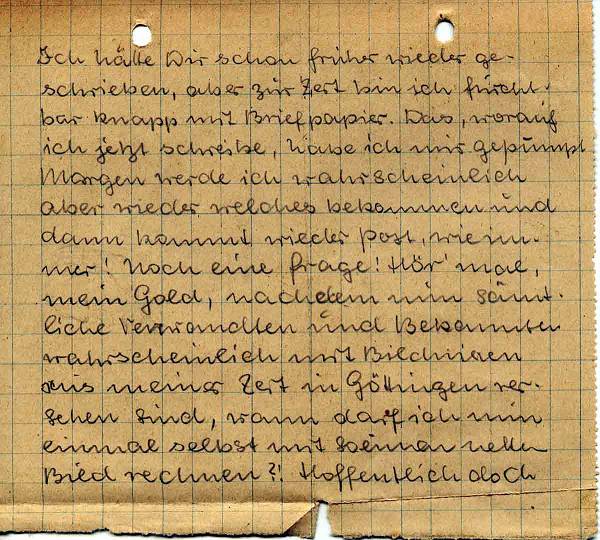 Ich hätte Dir schon früher wieder ge-
schrieben, aber zur Zeit bin ich furcht-
bar knapp mit Briefpapier. Das, worauf
ich jetzt schreibe, habe ich mir gepumpt
Morgen werde ich wahrscheinlich
aber wieder welches bekommen und
dann kommt wieder Post, wie im-
mer! Noch eine Frage! Hör' mal,
mein Gold, nachdem nun sämt-
liche Verwandten und Bekannten
wahrscheinlich mit Bildnissen
aus meiner Zeit in Göttingen ver-
sehen sind, wann darf ich nun
einmal selbst mit einem
Bild rechnen?! Hoffentlich doch